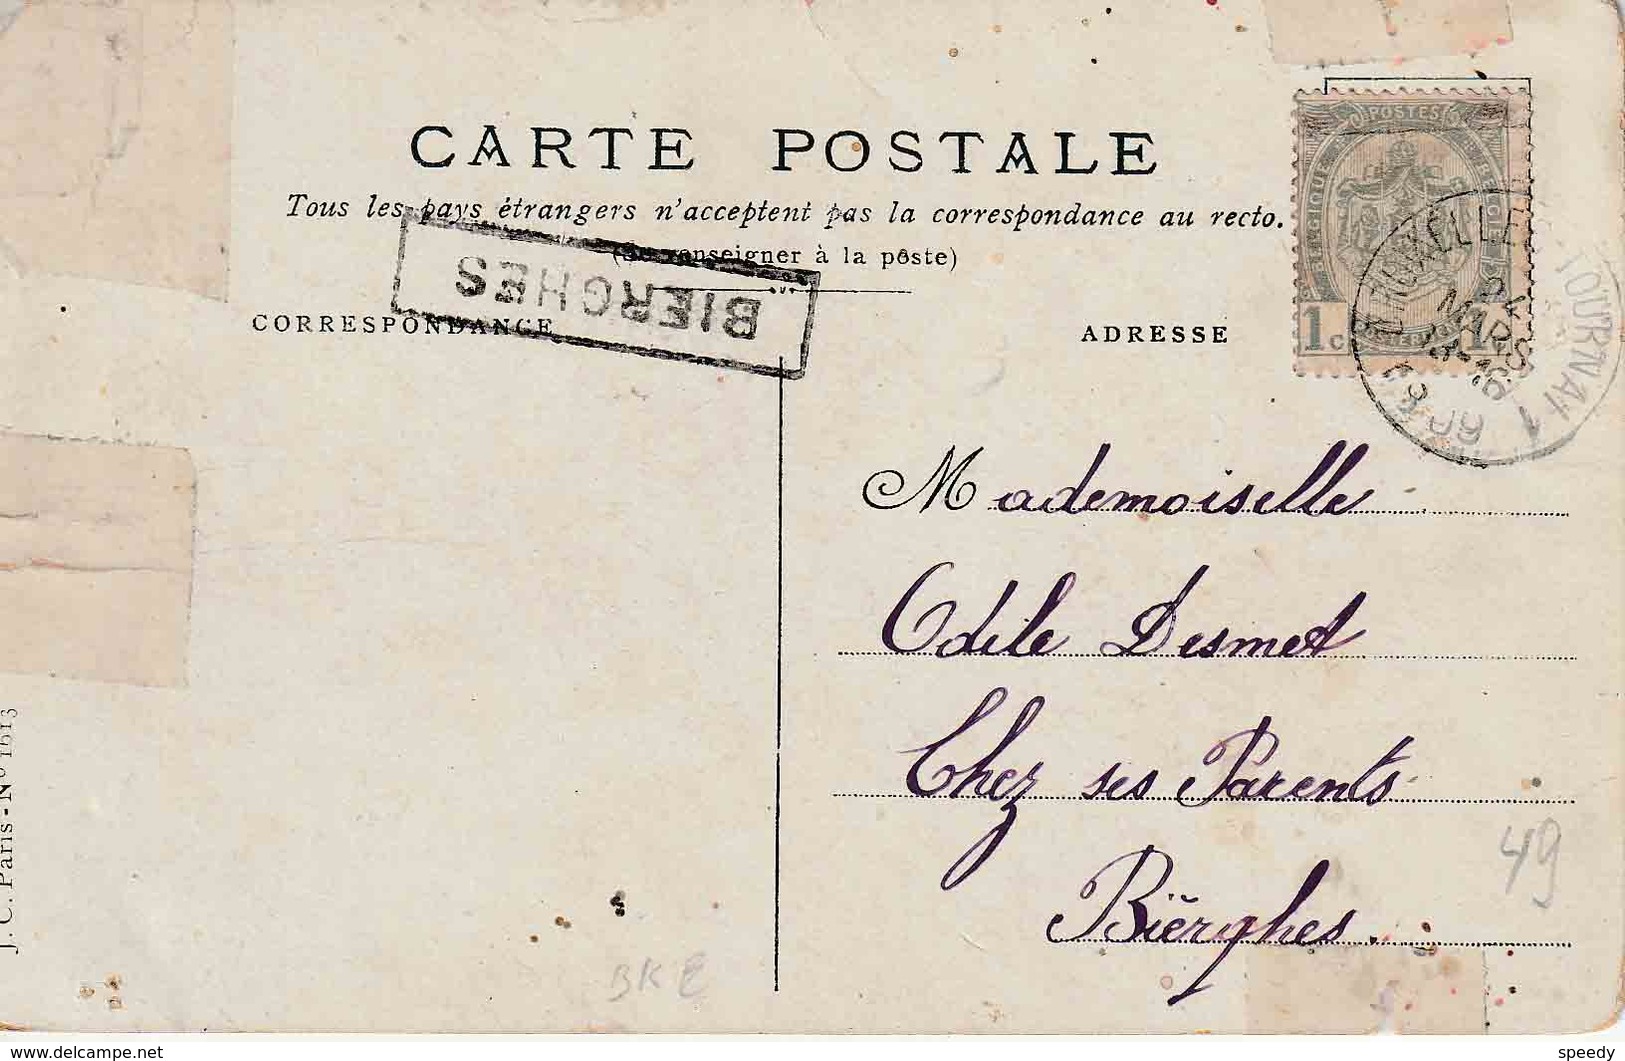 CARTE POSTALE
Tous les pays étrangers n'acceptent pas la correspondance au recto.
(Se renseigner à la poste)
BIERGHES
CORRESPONDANCE
ADRESSE
POSTES
1c
BRUXELLES
MARS
TOURNAI 1
Mademoiselle
Odile Desmet
Chez ses Parents
Biĕrghes.
49
BKE
J. C. Paris - No 1613
www.delcampe.net
speedy